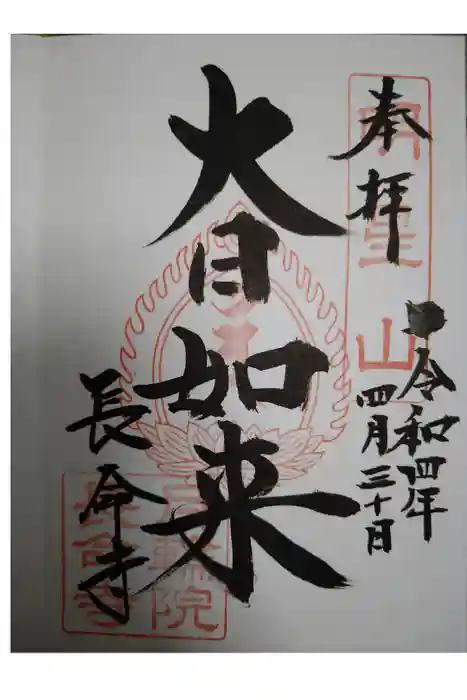 奉拝
令和四年
四月三十日
大日如来
長命寺